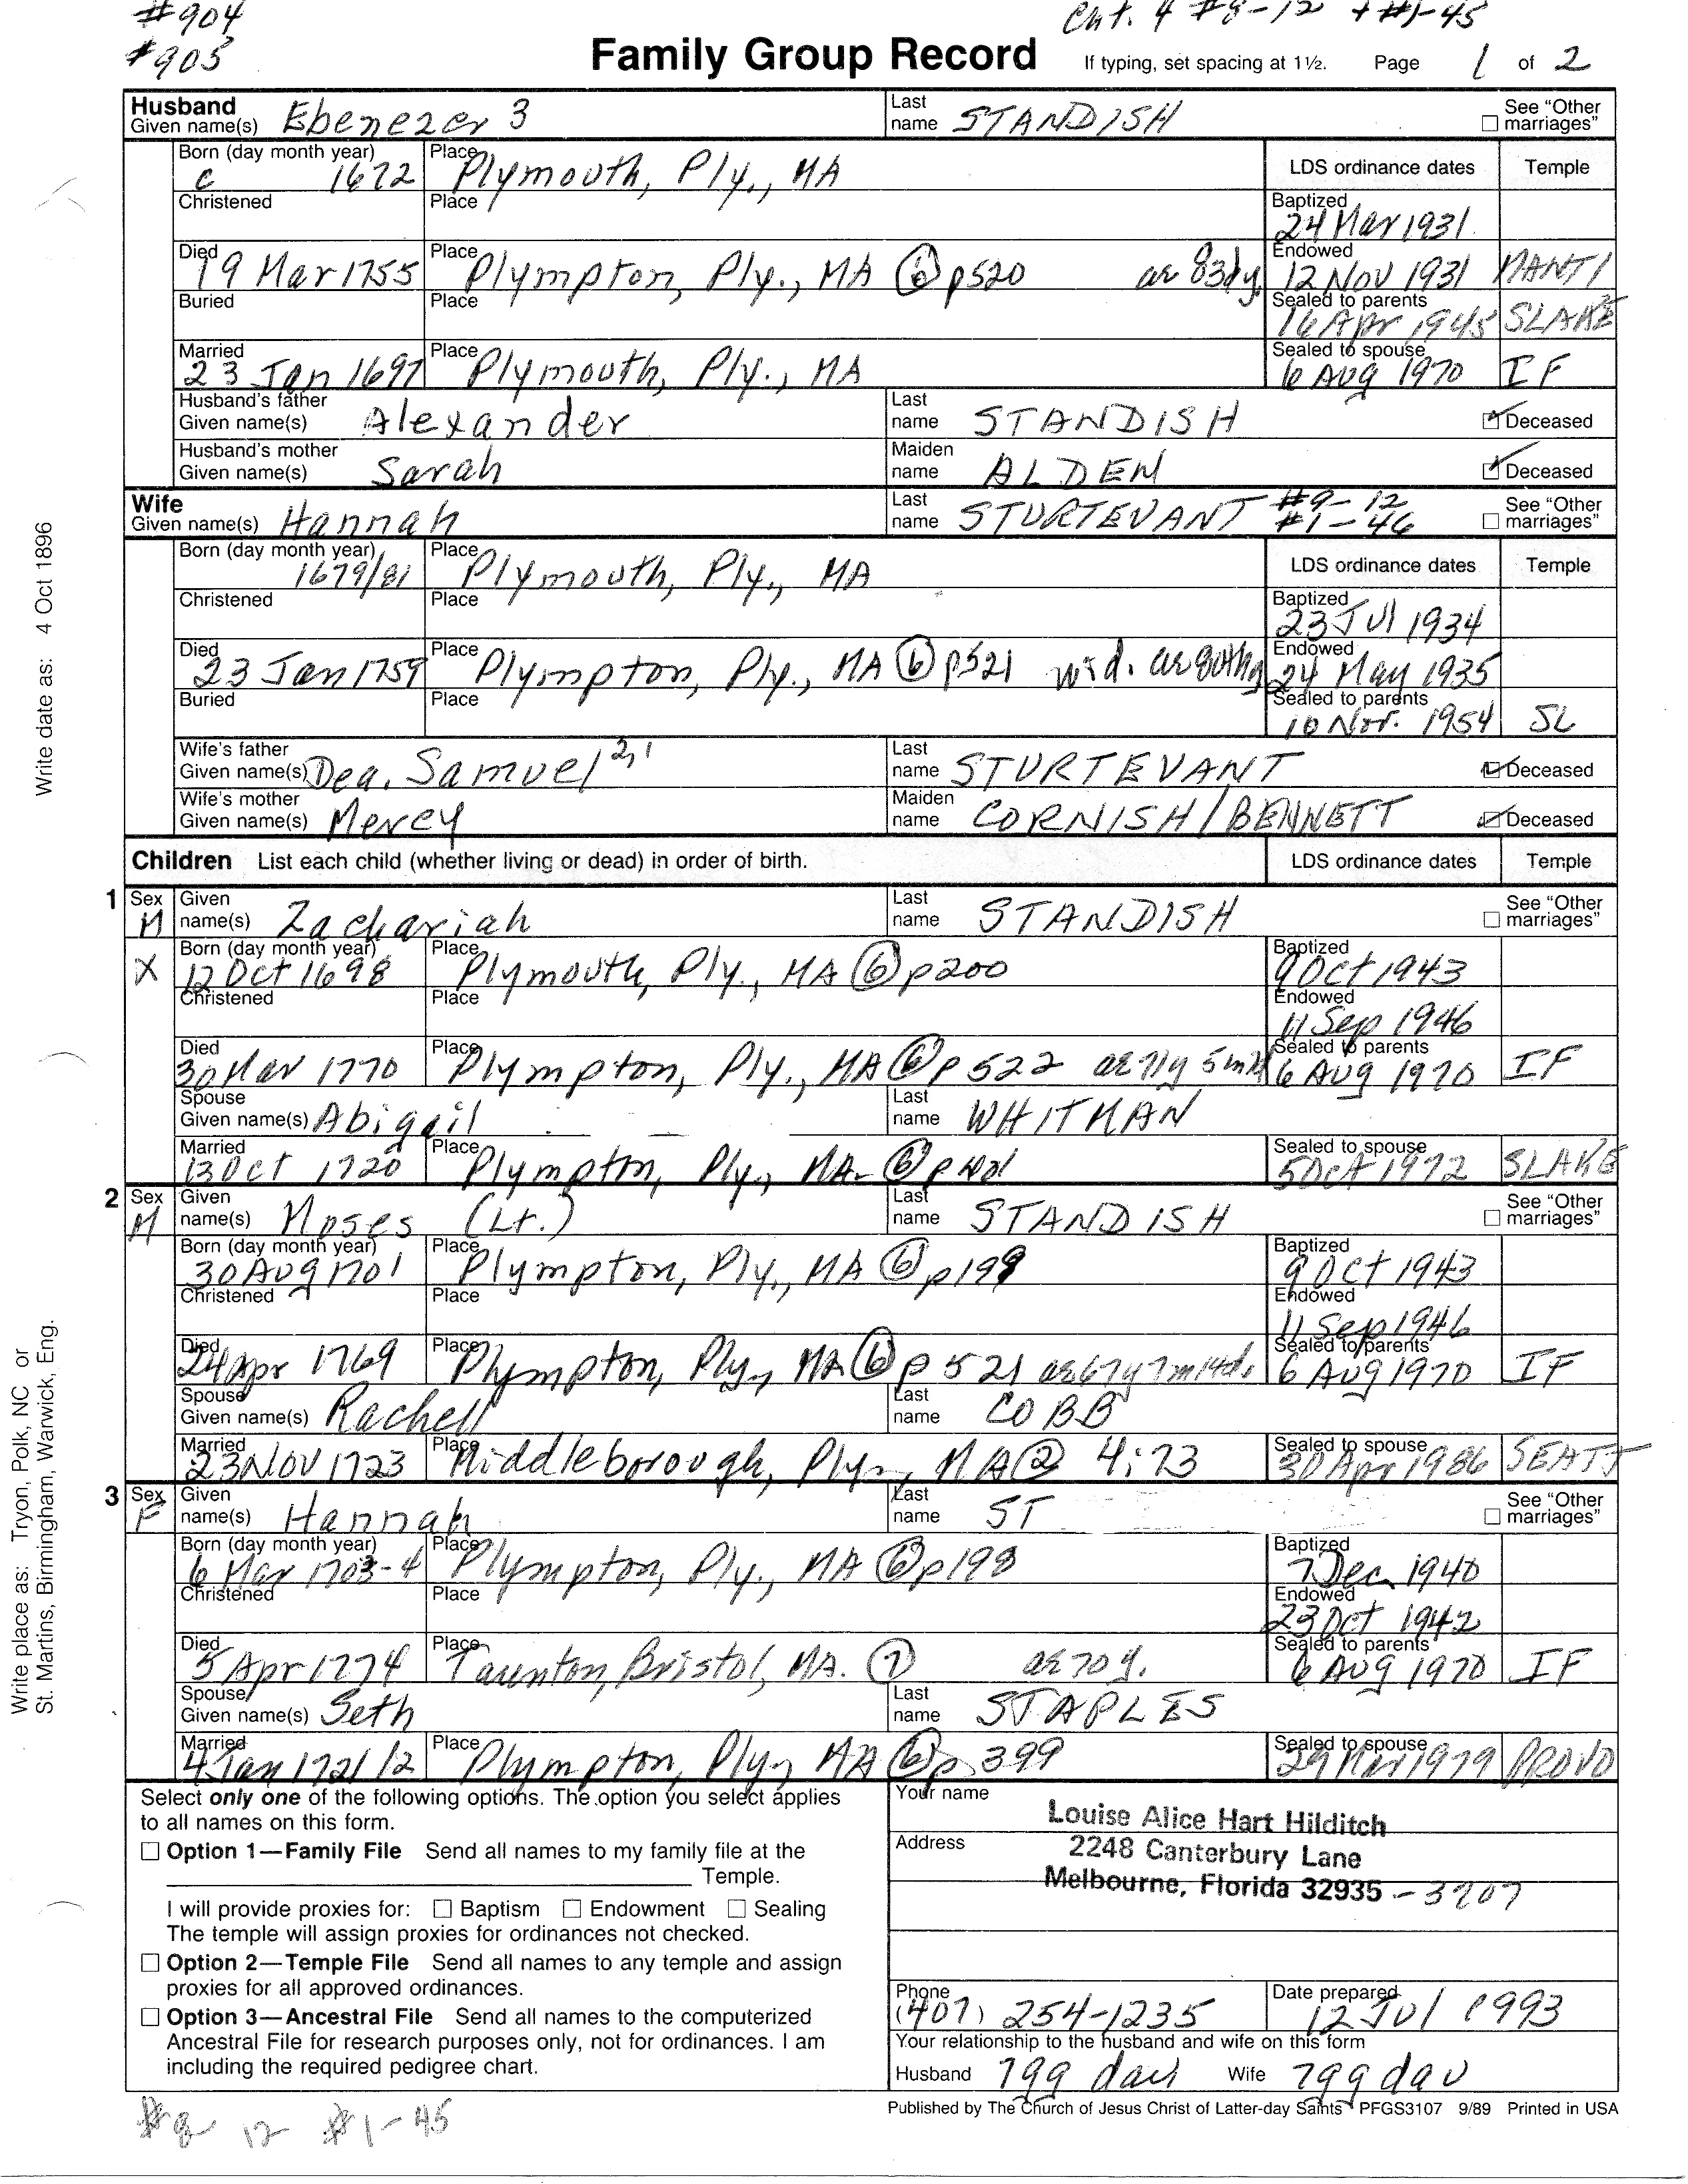 #904
#905
Cht. 4 #8-12 + #1-45
Family Group Record
If typing, set spacing at 1½. Page 1 of 2
Husband
Given name(s) Ebenezer 3
Last name STANDISH
See "Other marriages"
Born (day month year) c 1672
Place Plymouth, Ply., MA
LDS ordinance dates Temple
Christened
Place
Baptized 24 Mar 1931
Died 19 Mar 1755
Place Plympton, Ply., MA ⑥ p520 ae 83dy
Endowed 12 Nov 1931 MANTI
Buried
Place
Sealed to parents 16 Apr 1945 SLAKE
Married 23 Jan 1697
Place Plymouth, Ply., MA
Sealed to spouse 6 Aug 1970 IF
Husband's father
Given name(s) Alexander
Last name STANDISH
Deceased
Husband's mother
Given name(s) Sarah
Maiden name ALDEN
Deceased
Wife
Given name(s) Hannah
Last name STURTEVANT #9-12
#1-46
See "Other marriages"
Born (day month year) 1679/81
Place Plymouth, Ply., MA
LDS ordinance dates Temple
Christened
Place
Baptized 23 Jul 1934
Died 23 Jan 1759
Place Plympton, Ply., MA ⑥ p521 wid.
Endowed 24 May 1935
Buried
Place
Sealed to parents 10 Nov. 1954 SL
Wife's father
Given name(s) Dea. Samuel 2,1
Last name STURTEVANT
Deceased
Wife's mother
Given name(s) Mercy
Maiden name CORNISH/BENNETT
Deceased
Children List each child (whether living or dead) in order of birth.
LDS ordinance dates Temple
1 Sex M
Given name(s) Zachariah
Last name STANDISH
See "Other marriages"
X
Born (day month year) 12 Oct 1698
Place Plymouth, Ply., MA ⑥ p200
Baptized 9 Oct 1943
Christened
Place
Endowed 11 Sep 1946
Died 30 Mar 1770
Place Plympton, Ply., MA ⑥ p522 ae 71y 5m
Sealed to parents 6 Aug 1970 IF
Spouse
Given name(s) Abigail
Last name WHITMAN
Married 13 Oct 1720
Place Plympton, Ply., MA ⑥
Sealed to spouse 5 Oct 1972 SLAKE
2 Sex M
Given name(s) Moses (Lt.)
Last name STANDISH
See "Other marriages"
Born (day month year) 30 Aug 1701
Place Plympton, Ply., MA ⑥ p199
Baptized 9 Oct 1943
Christened
Place
Endowed 11 Sep 1946
Died 24 Apr 1769
Place Plympton, Ply., MA ⑥ p 521 ae 67y 7m 14d.
Sealed to parents 6 Aug 1970 IF
Spouse
Given name(s) Rachell
Last name COBB
Married 23 Nov 1723
Place Middleborough, Ply., MA ② 4:73
Sealed to spouse 30 Apr 1986 SEATT
3 Sex F
Given name(s) Hannah
Last name ST
See "Other marriages"
Born (day month year) 6 Mar 1703-4
Place Plympton, Ply., MA ⑥ p198
Baptized 7 Dec 1940
Christened
Place
Endowed 23 Oct 1942
Died 5 Apr 1774
Place Taunton, Bristol, MA. ⑦ ae 70 y.
Sealed to parents 6 Aug 1970 IF
Spouse
Given name(s) Seth
Last name STAPLES
Married 4 Jan 1721/2
Place Plympton, Ply., MA ⑥ p 399
Sealed to spouse 29 Mar 1979 PROVO
Select only one of the following options. The option you select applies
to all names on this form.
Option 1—Family File Send all names to my family file at the
Temple.
I will provide proxies for: Baptism Endowment Sealing
The temple will assign proxies for ordinances not checked.
Option 2—Temple File Send all names to any temple and assign
proxies for all approved ordinances.
Option 3—Ancestral File Send all names to the computerized
Ancestral File for research purposes only, not for ordinances. I am
including the required pedigree chart.
Your name
Louise Alice Hart Hilditch
Address
2248 Canterbury Lane
Melbourne, Florida 32935 - 3207
Phone (407) 254-1235
Date prepared 12 Jul 1993
Your relationship to the husband and wife on this form
Husband 7gg dau Wife 7gg dau
Published by The Church of Jesus Christ of Latter-day Saints PFGS3107 9/89 Printed in USA
#8 12 #1-45
Write date as: 4 Oct 1896
Write place as: Tryon, Polk, NC or
St. Martins, Birmingham, Warwick, Eng.